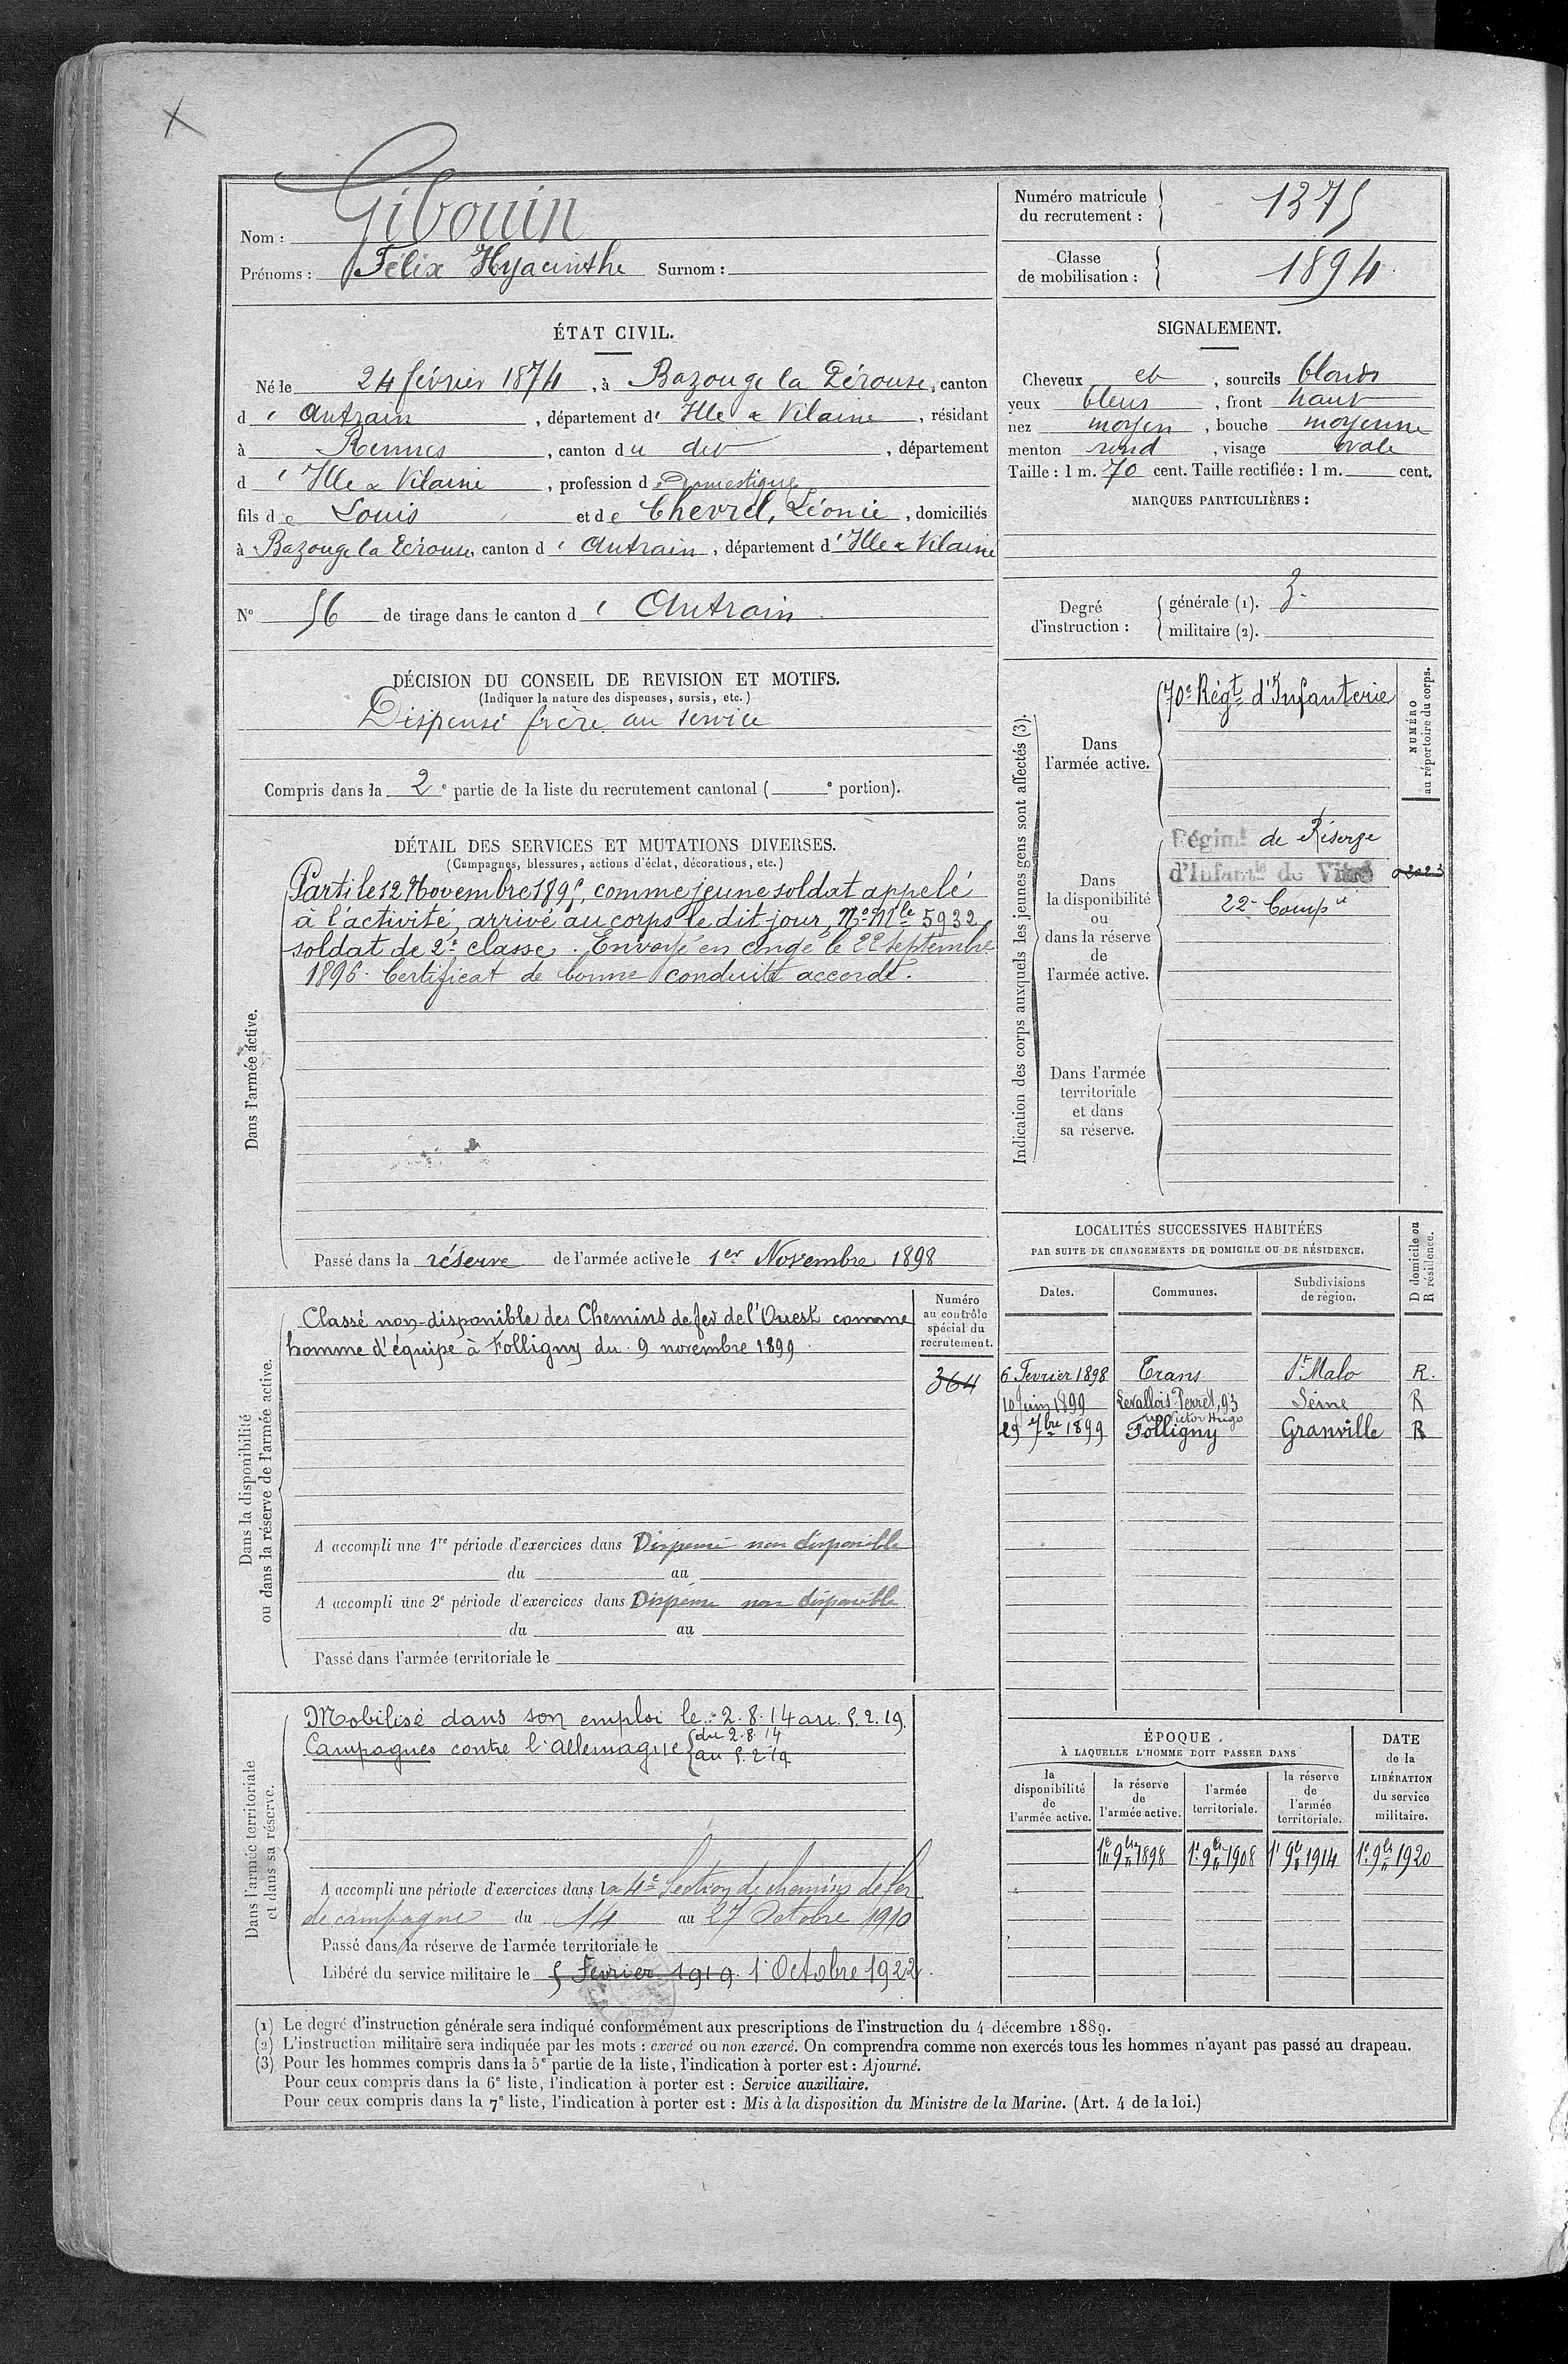 Nom : Gibouin
Prénoms : Félix Hyacinthe Surnom :
Numéro matricule du recrutement : 1375
Classe de mobilisation : 1894
ÉTAT CIVIL.
Né le 24 février 1874, à Bazouge la Pérouse, canton
d' Antrain, département d' Ille & Vilaine, résidant
à Rennes, canton du dit, département
d' Ille & Vilaine, profession de Domestique
fils de Louis et de Chevrel, Léonie, domiciliés
à Bazouge la Pérouse, canton d' Antrain, département d' Ille & Vilaine
N° 56 de tirage dans le canton d' Antrain
SIGNALEMENT.
Cheveux et, sourcils blonds
yeux bleus, front haut
nez moyen, bouche moyenne
menton rond, visage ovale
Taille : 1 m. 70 cent. Taille rectifiée : 1 m. cent.
MARQUES PARTICULIÈRES :
Degré d'instruction :
générale (1). 3.
militaire (2).
DÉCISION DU CONSEIL DE REVISION ET MOTIFS.
(Indiquer la nature des dispenses, sursis, etc.)
Dispensé frère au service
Compris dans la 2e partie de la liste du recrutement cantonal ( e portion).
DÉTAIL DES SERVICES ET MUTATIONS DIVERSES.
(Campagnes, blessures, actions d'éclat, décorations, etc.)
Dans l'armée active.
Parti le 12 Novembre 1895, comme jeune soldat appelé
à l'activité, arrivé au corps le dit jour, No Mle 5932
soldat de 2e classe. Envoyé en congé le 22 septembre
1896. Certificat de bonne conduite accordé.
Passé dans la réserve de l'armée active le 1er Novembre 1898
Indication des corps auxquels les jeunes gens sont affectés (3).
NUMÉRO au répertoire du corps.
Dans l'armée active.
70e Régt d'Infanterie
Dans la disponibilité ou dans la réserve de l'armée active.
Régimt de Réserve
d'Infantie de Vitré
22e Compie
Dans l'armée territoriale et dans sa réserve.
LOCALITÉS SUCCESSIVES HABITÉES
PAR SUITE DE CHANGEMENTS DE DOMICILE OU DE RÉSIDENCE.
D domicile ou R résidence.
Dates. Communes. Subdivisions de région.
6 Fevrier 1898 Trans St Malo R.
10 Juin 1899 Levallois Perret, 93 rue Victor Hugo Seine R
29 7bre 1899 Folligny Granville R
Dans la disponibilité ou dans la réserve de l'armée active.
Numéro au contrôle spécial du recrutement.
364
Classé non-disponible des Chemins de fer de l'Ouest comme
homme d'équipe à Folligny du 9 novembre 1899.
A accompli une 1re période d'exercices dans Dispensé non disponible
du au
A accompli une 2e période d'exercices dans Dispensé non disponible
du au
Passé dans l'armée territoriale le
Dans l'armée territoriale et dans sa réserve.
Mobilisé dans son emploi le 2.8.14 au 5.2.19.
Campagnes contre l'Allemagne { du 2.8.14
au 5.2.19
A accompli une période d'exercices dans la 4e Section de chemins de fer
de campagne du 14 au 27 Octobre 1910
Passé dans la réserve de l'armée territoriale le
Libéré du service militaire le 5 Fevrier 1919. 1er Octobre 1922.
ÉPOQUE
À LAQUELLE L'HOMME DOIT PASSER DANS
la disponibilité de l'armée active.
la réserve de l'armée active.
l'armée territoriale.
la réserve de l'armée territoriale.
DATE de la LIBÉRATION du service militaire.
1er 9bre 1898 1er 9bre 1908 1er 9bre 1914 1er 9bre 1920
(1) Le degré d'instruction générale sera indiqué conformément aux prescriptions de l'instruction du 4 décembre 1889.
(2) L'instruction militaire sera indiquée par les mots : exercé ou non exercé. On comprendra comme non exercés tous les hommes n'ayant pas passé au drapeau.
(3) Pour les hommes compris dans la 5e partie de la liste, l'indication à porter est : Ajourné.
Pour ceux compris dans la 6e liste, l'indication à porter est : Service auxiliaire.
Pour ceux compris dans la 7e liste, l'indication à porter est : Mis à la disposition du Ministre de la Marine. (Art. 4 de la loi.)